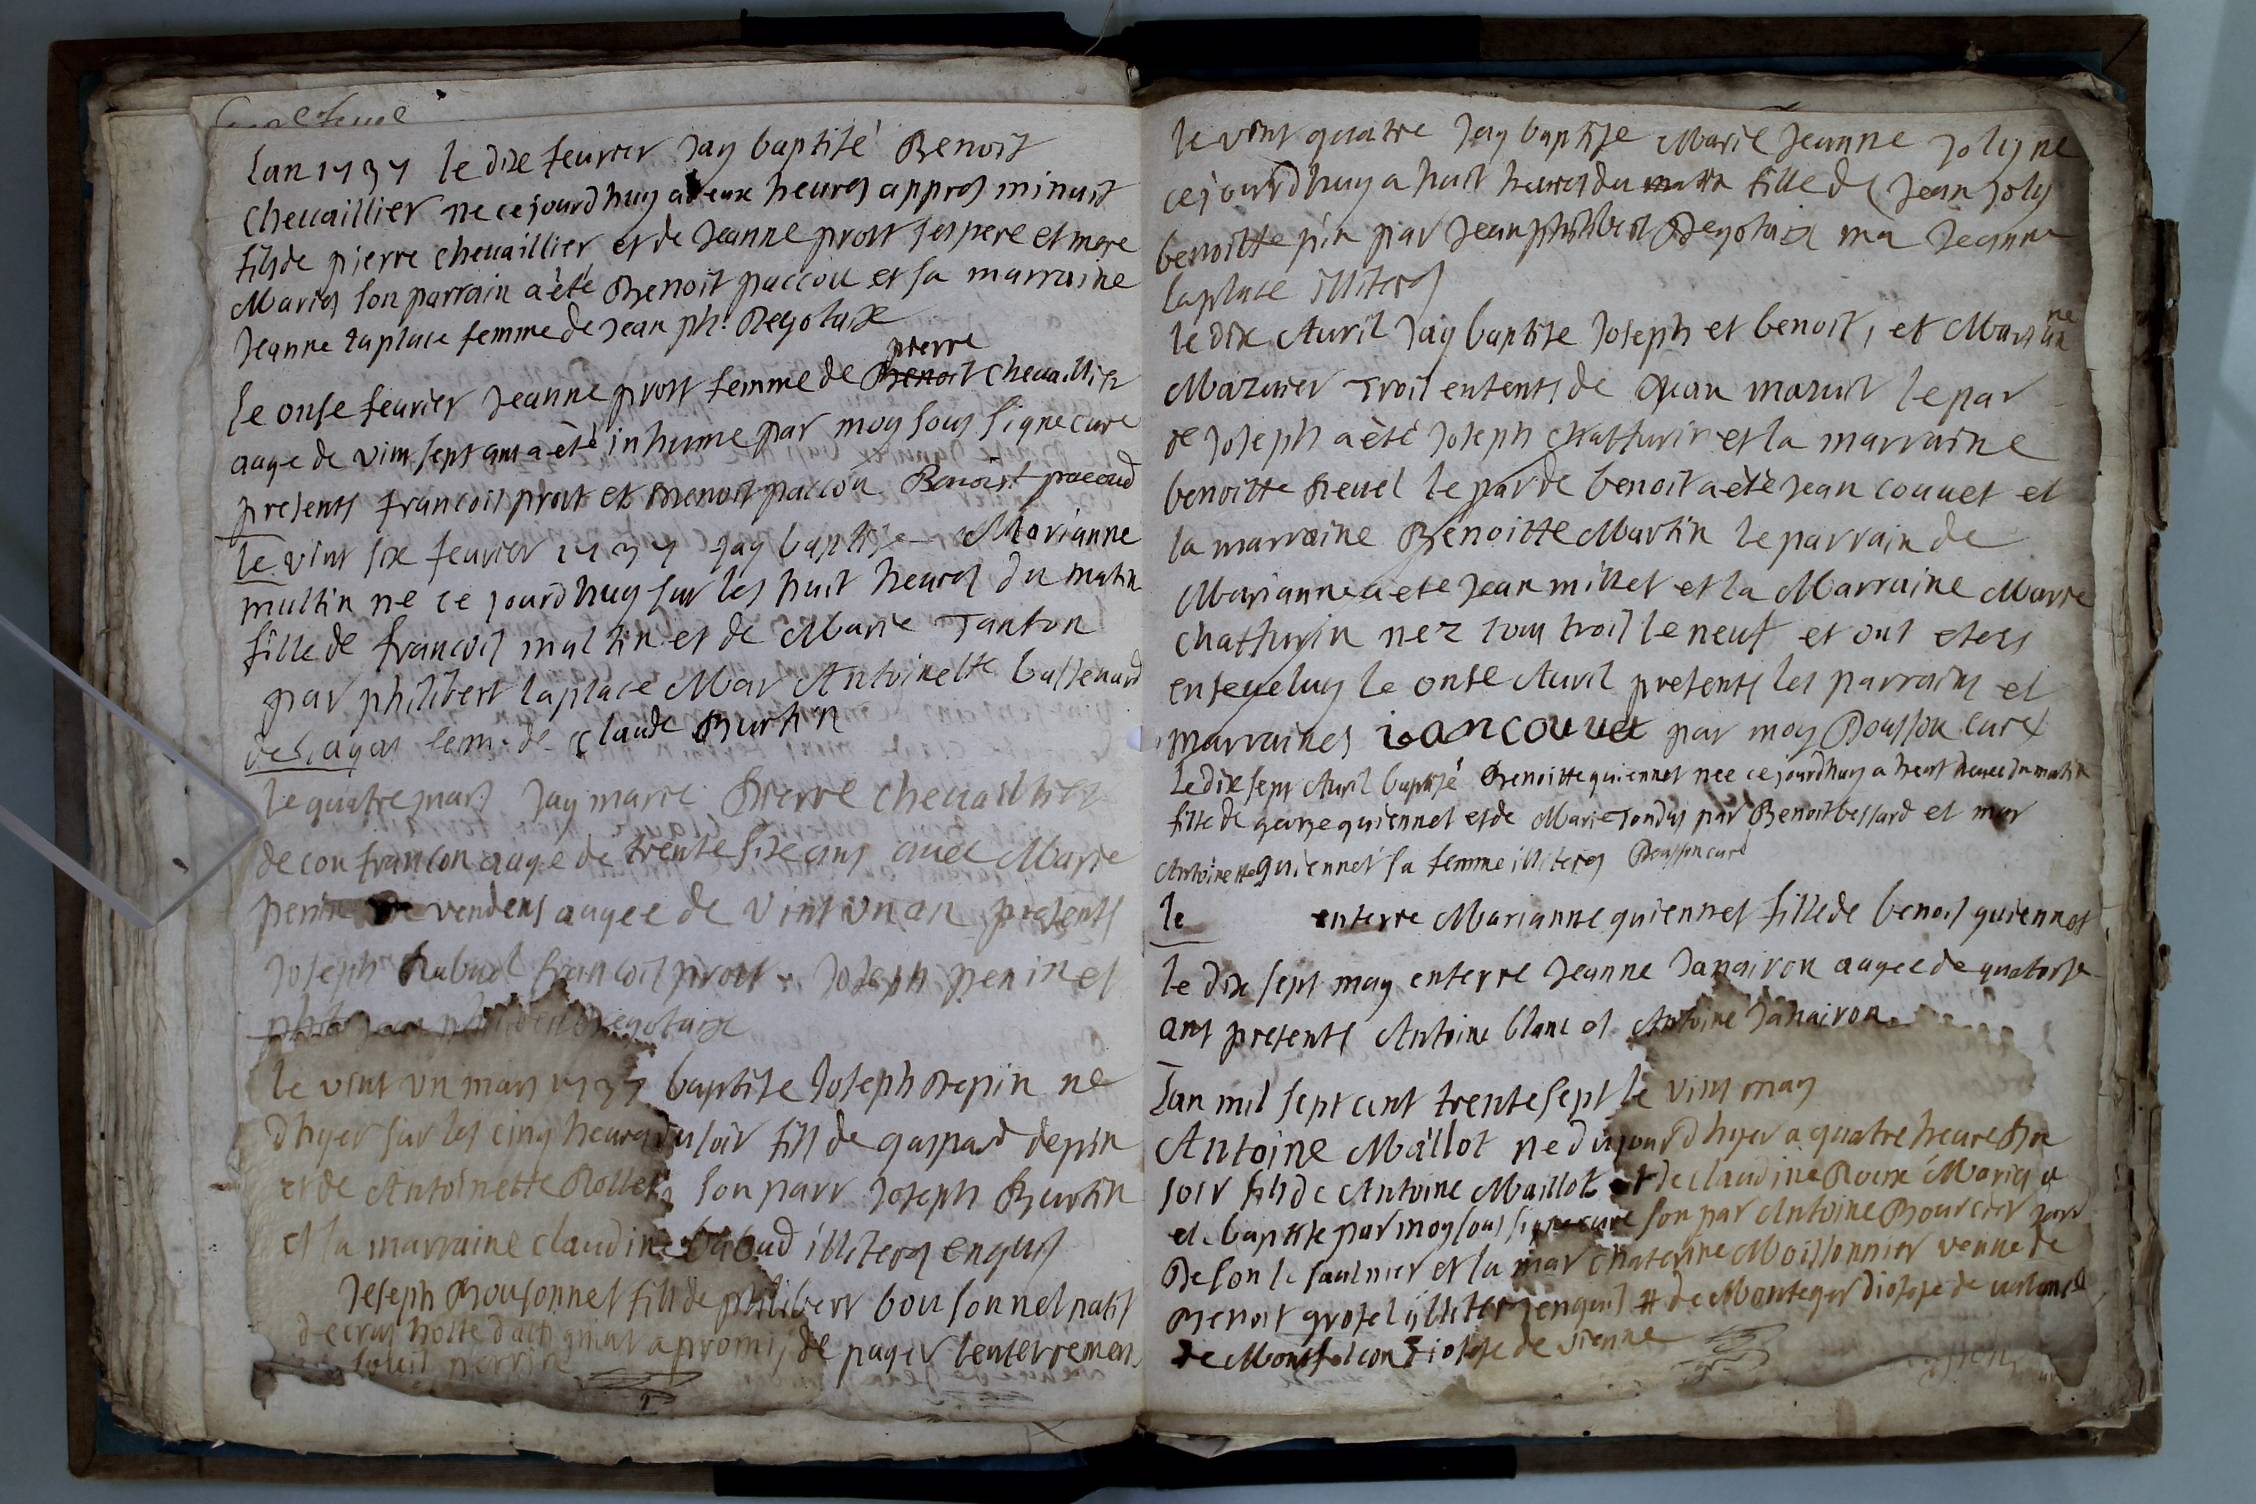 Lan 1737 le dixe feurier Jay baptisé Benoit
cheuaillier ne cejourdhuy a deux heures appres minuit
fils de pierre cheuaillier et de Jeanne prost ses pere et mere
Maries son parrain a été Benoit paccou et sa marraine
Jeanne Laplace femme de Jean ph. Degolaix
pierre
le onse feurier Jeanne prost femme de Benoit cheuaillier
aage de vint sept ans a été inhume par moy sous signe cure
presents francois prost et Benoit paccou Benoist paccoud
le vint six feurier 1737 Jay baptise Marianne
multin ne ce jourdhuy sur les huit heures du matin
fille de francois multin et de Marie Tanton
par philibert laplace Mar Antoinette
fem. de Claude Burtin
le quatre mars Jay marie Pierre cheuaillier
de confrancon aagé de trente sixe ans auec Marie
perin vendens aagee de vint un an presents
Joseph francois prost Joseph perin et
le vint un mars 1737 baptise Joseph Depin ne
dhyer sur les cinq heures du soir fils de gaspard depin
et de Antoinette Rollet son parr Joseph Burtin
et la marraine claudine illiteres enquis
Joseph Bousonnet fils de philibert bousonnet natif
a promis de payer lenterrement
le vint quatre Jay baptise Marie Jeanne Jolyne
cejourdhuy a huit heures du matin fille de Jean Joly
benoitte pin par Jean philibert Degolaix ma Jeanne
Laplace illiteres
le dixe Auril Jay baptise Joseph et benoit, et Marianne
Mazuier Trois enfents de Jean mazuit le par
de Joseph a été Joseph chatturin et la marraine
benoitte Reuel le par de benoit a été Jean couuet et
la marraine Benoitte Martin le parrain de
Marianne a ete Jean millet et la Marraine Marie
chatturin nez tous trois le neuf et ont etees
enseuelys le onse Auril presents les parrains et
marraines ioancouuet par moy Bousson curé
Le dix sept Auril baptisé Benoitte quiennet nee cejourdhuy a heure du matin
fille de george quiennet et de Marie Tondus par Benoit bessard et mar
Antoinette quiennet sa femme illiteres Bousson curé
le enterre Marianne quiennet fille de benoit quiennet
le dix sept may enterre Jeanne Janairon aagee de quatorse
ans presents Antoine blanc et Antoine Janairon
Lan mil sept cent trente sept le vint may
Antoine Maillot ne du jourdhyer a quatre heure du
soir fils de Antoine Maillot et de claudine Roux Maries a
et baptise par moy sous signe cure son par Antoine Bourcier
De Son le Saulnier et la mar chaterine Moissonnier veuue de
Benoit grosel illiteres enquis # de Monteger diosese de valence
de Montfalcon diosese de vienne